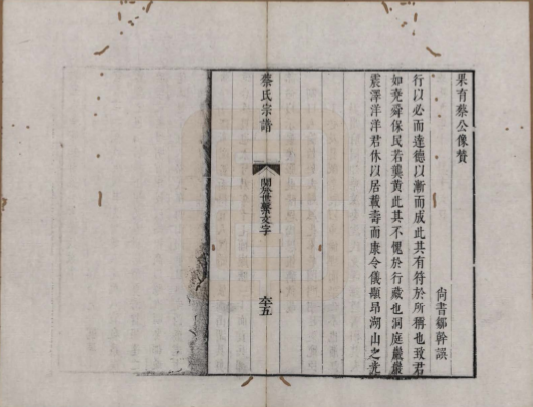 果有蔡公像贊
尚書鄒幹譔
行以必而達德以漸而成此其有符於所稱也致君
如堯舜保民若龔黃此其不愧於行藏也洞庭巖巖
震澤洋洋君休以居載壽而康令儀顒昂湖山之光
蔡氏宗譜
關於世系文字
五